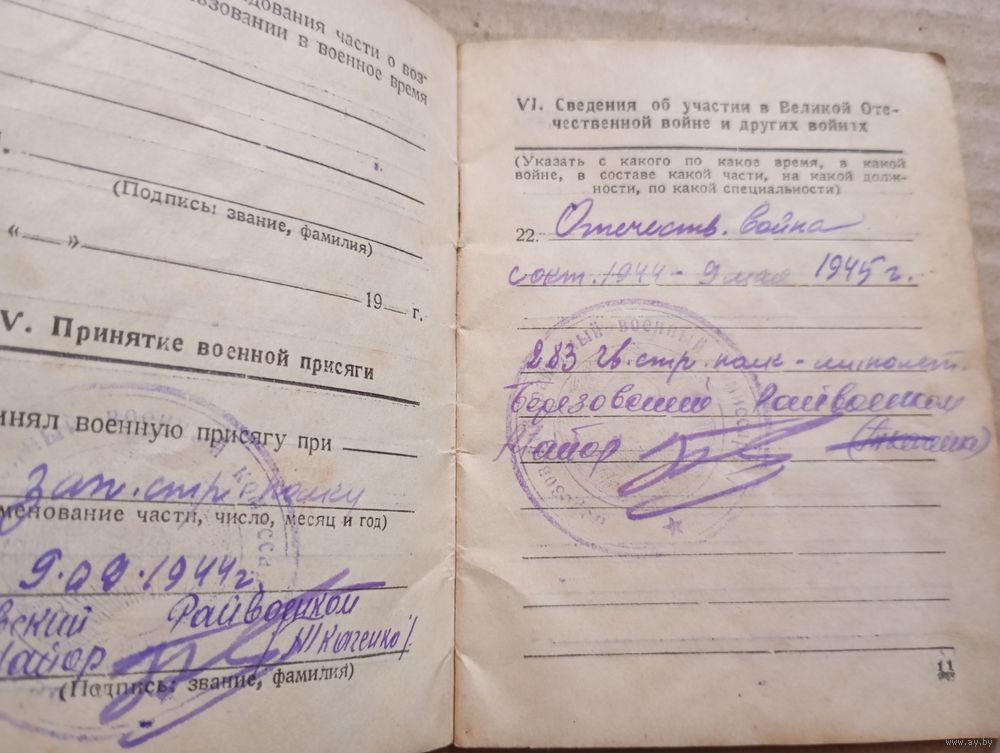 дования части о воз-
льзовании в военное время
(Подпись: звание, фамилия)
«—» 19— г.
V. Принятие военной присяги
инял военную присягу при
Зап. стр. полку
менование части, число, месяц и год)
9.09.1944г.
вский Райвоенком
Майор /Ткаченко/
(Подпись: звание, фамилия)
VI. Сведения об участии в Великой Оте-
чественной войне и других войнах
(Указать с какого по какое время, в какой
войне, в составе какой части, на какой долж-
ности, по какой специальности)
22. Отечеств. война
с окт. 1944 - 9 мая 1945 г.
283 гв. стр. полк -
Березовский Райвоенком
Майор (Ткаченко)
11
www.ay.by